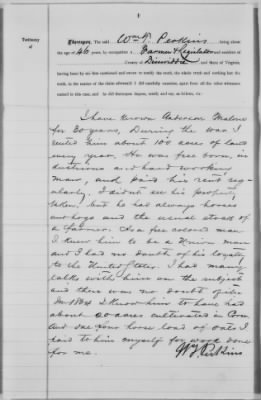 1
Testimony
of
Thereupon, The said Wm F. Perkins, being about
the age of 46 years, by occupation a Farmer & Legislator and resident of
County of Dinwiddie and State of Virginia,
having been by me first cautioned and sworn to testify the truth, the whole truth and nothing but the
truth, in the matter of the claim aforesaid I did carefully examine, apart from all the other witnesses
named in this case, and he did thereupon depose, testify and say, as follows, viz:
I have known Anderson Malone
for 20 years, During the war I
rented him about 100 acres of land
every year. He was free born, in-
dustrious and hard working
man, and paid his rent reg-
ularly. I didnt see his property
taken, but he had always horses
and hogs and the usual stock of
a farmer. As a free colored man
I knew him to be a Union man
and I had no doubt of his loyalty
to the United States. I had many
talks with him on the subject
and there was no doubt of it.
In 1864 I know him to have had
about 20 acres cultivated in Corn
And one four horse load of oats I
paid to him myself for work done
for me.
Wm F Perkins